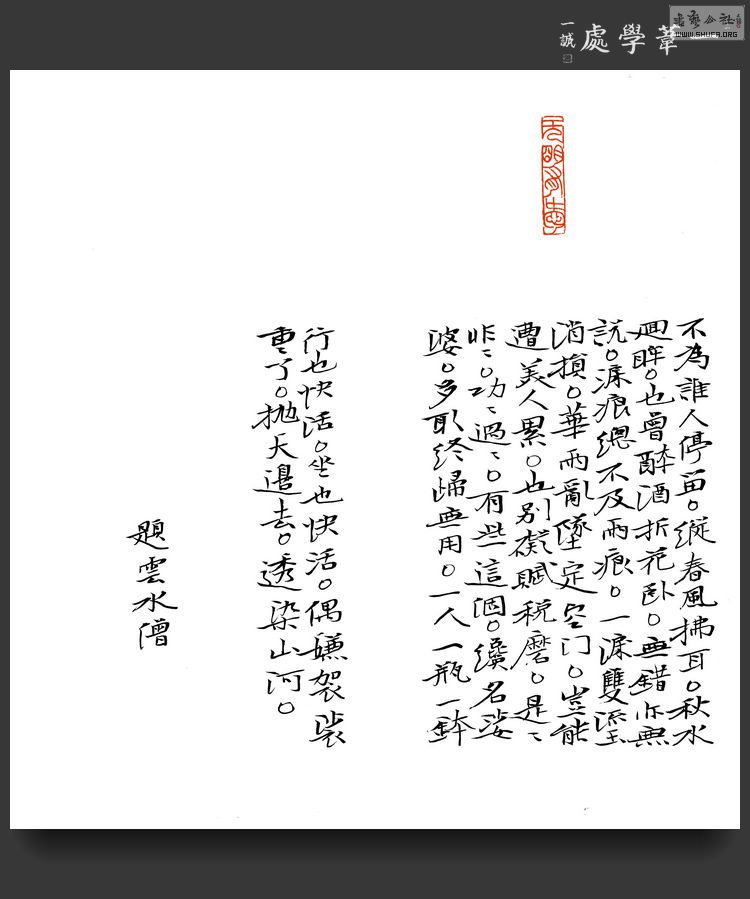 一葦學處
一誠
書藝公社
WWW.SHUFA.ORG
不為誰人停留。縱春風拂耳。秋水
迴眸。也曾醉酒折花卧。無錯亦無
説。淚痕總不及雨痕。一淚雙溼
消損。華雨亂墜定空门。豈能
遭美人累。也别礙賦税磨。是〻
非〻。功〻過〻。有些這個。纔名娑
婆。多取终歸無用。一人一瓶一鉢
行也快活。坐也快活。偶嫌袈裟
重了。抛天邊去。透染山河。
題雲水僧